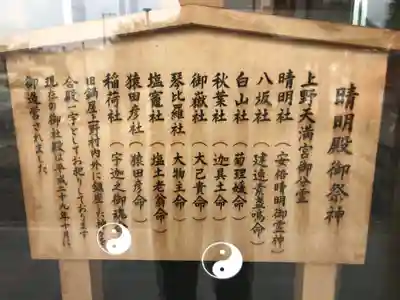 晴明殿御祭神
上野天満宮御分霊
晴明社（安倍晴明御霊神）
八坂社（建速素盞嗚命）
白山社（菊理媛命）
秋葉社（迦具土命）
御嶽社（大己貴命）
琴比羅社（大物主命）
塩竈社（塩土老翁命）
猿田彦社（猿田彦命）
稲荷社（宇迦之御魂
旧鍋屋上野村内外に鎮座した神
合殿一宇としてお祀りしております
現在の御社殿は平成二十九年十月
御造営されました